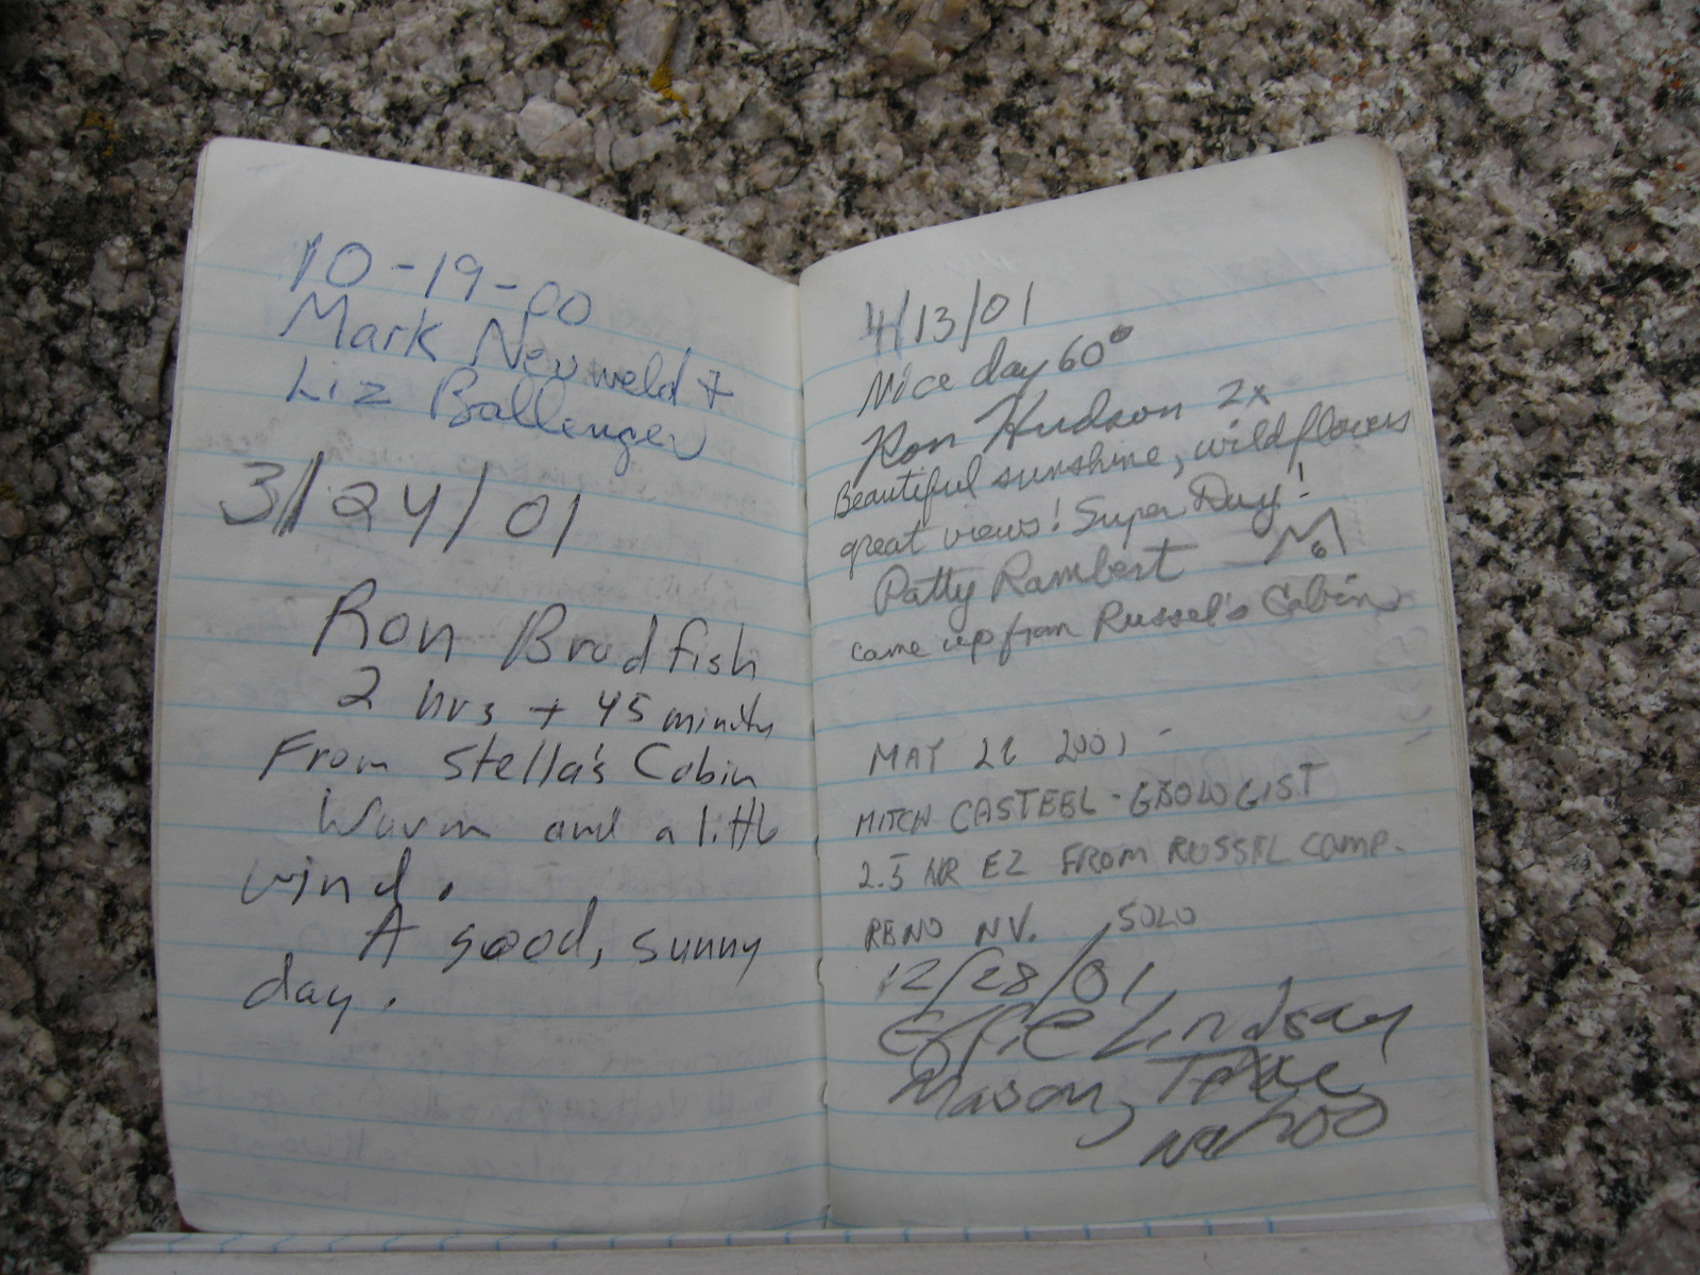 10-19-00
Mark Neuweld +
Liz Ballenger
3/24/01
Ron Bradfish
2 hrs + 45 minits
From Stella's Cabin
Warm and a little
wind.
A good, sunny
day.
4/13/01
Nice day 60°
Ron Hudson 2x
Beautiful sunshine, wildflowers
great views! Super Day!
Patty Rambert
came up from Russel's Cabin
MAY 2001
MITCH CASTEEL - GEOLOGIST
2.5 HR EZ FROM RUSSEL CAMP.
RENO NV. SOLO
12/28/01
Effie Lindsay
Mason,